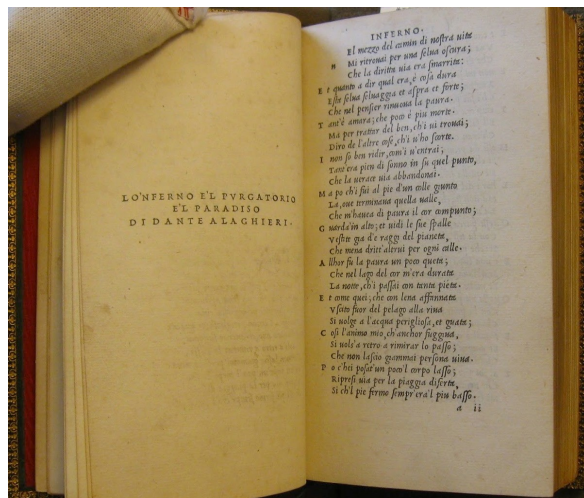 LO'NFERNO E'L PVRGATORIO
E'L PARADISO
DI DANTE ALAGHIERI.
INFERNO.
El mezzo del camin di nostra uita
n Mi ritrouai per una selua oscura;
Che la diritta uia era smarrita:
E t quanto a dir qual era, è cosa dura
Esta selua seluaggia et aspra et forte;
Che nel pensier rinuoua la paura.
T ant'è amara; che poco è piu morte.
Ma per trattar del ben, ch'i ui trouai;
Diro de l'altre cose, ch'i u'ho scorte.
I non so ben ridir, com'i u'entrai;
Tant era pien di sonno in su quel punto,
Che la uerace uia abbandonai.
M a po ch'i fui al pie d'un colle giunto
La, oue terminaua quella ualle,
Che m'hauea di paura il cor compunto;
G uarda'in alto; et uidi le sue spalle
Vestite gia d'e raggi del pianeta,
Che mena dritt'altrui per ogni calle.
A llhor fu la paura un poco queta;
Che nel lago del cor m'era durata
La notte, ch'i passai con tanta pieta.
E t come quei; che con lena affannata
Vscito fuor del pelago alla riua
Si uolge a l'acqua perigliosa, et guata;
C osi l'animo mio, ch'anchor fuggiua,
Si uols'a retro a rimirar lo passo;
Che non lascio giammai persona uiua.
P o c'hei posat'un poco'l corpo lasso;
Ripresi uia per la piaggia diserta,
Si ch'l pie fermo sempr'era'l piu basso.
a ii